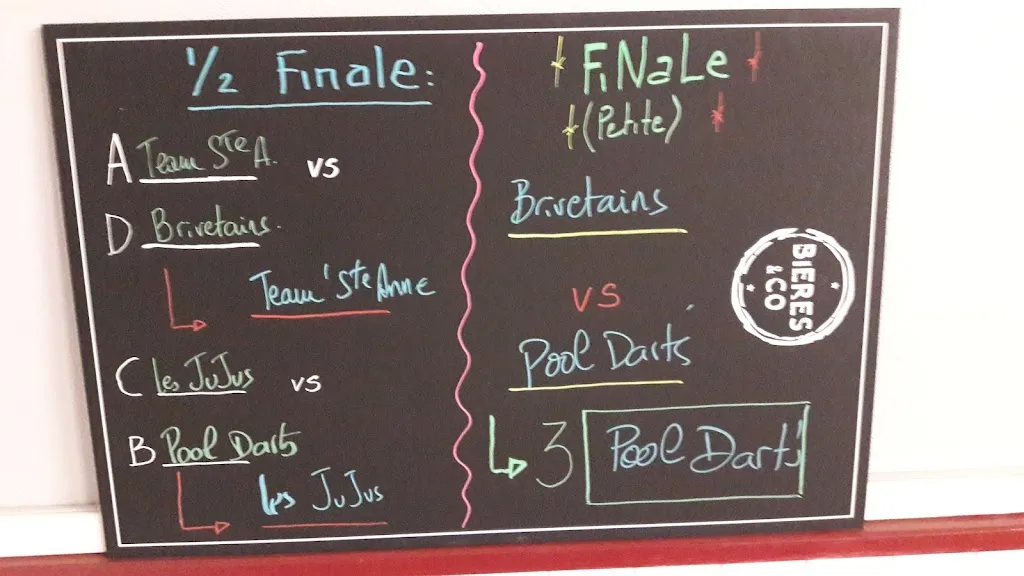 1/2 Finale:
A Team Ste A. vs
D Brivetains.
Team Ste Anne
C les JuJus vs
B Pool Darts
les JuJus
FiNaLe
(Petite)
Brivetains
VS
Pool Darts
3 Pool Darts
BIERES
& CO